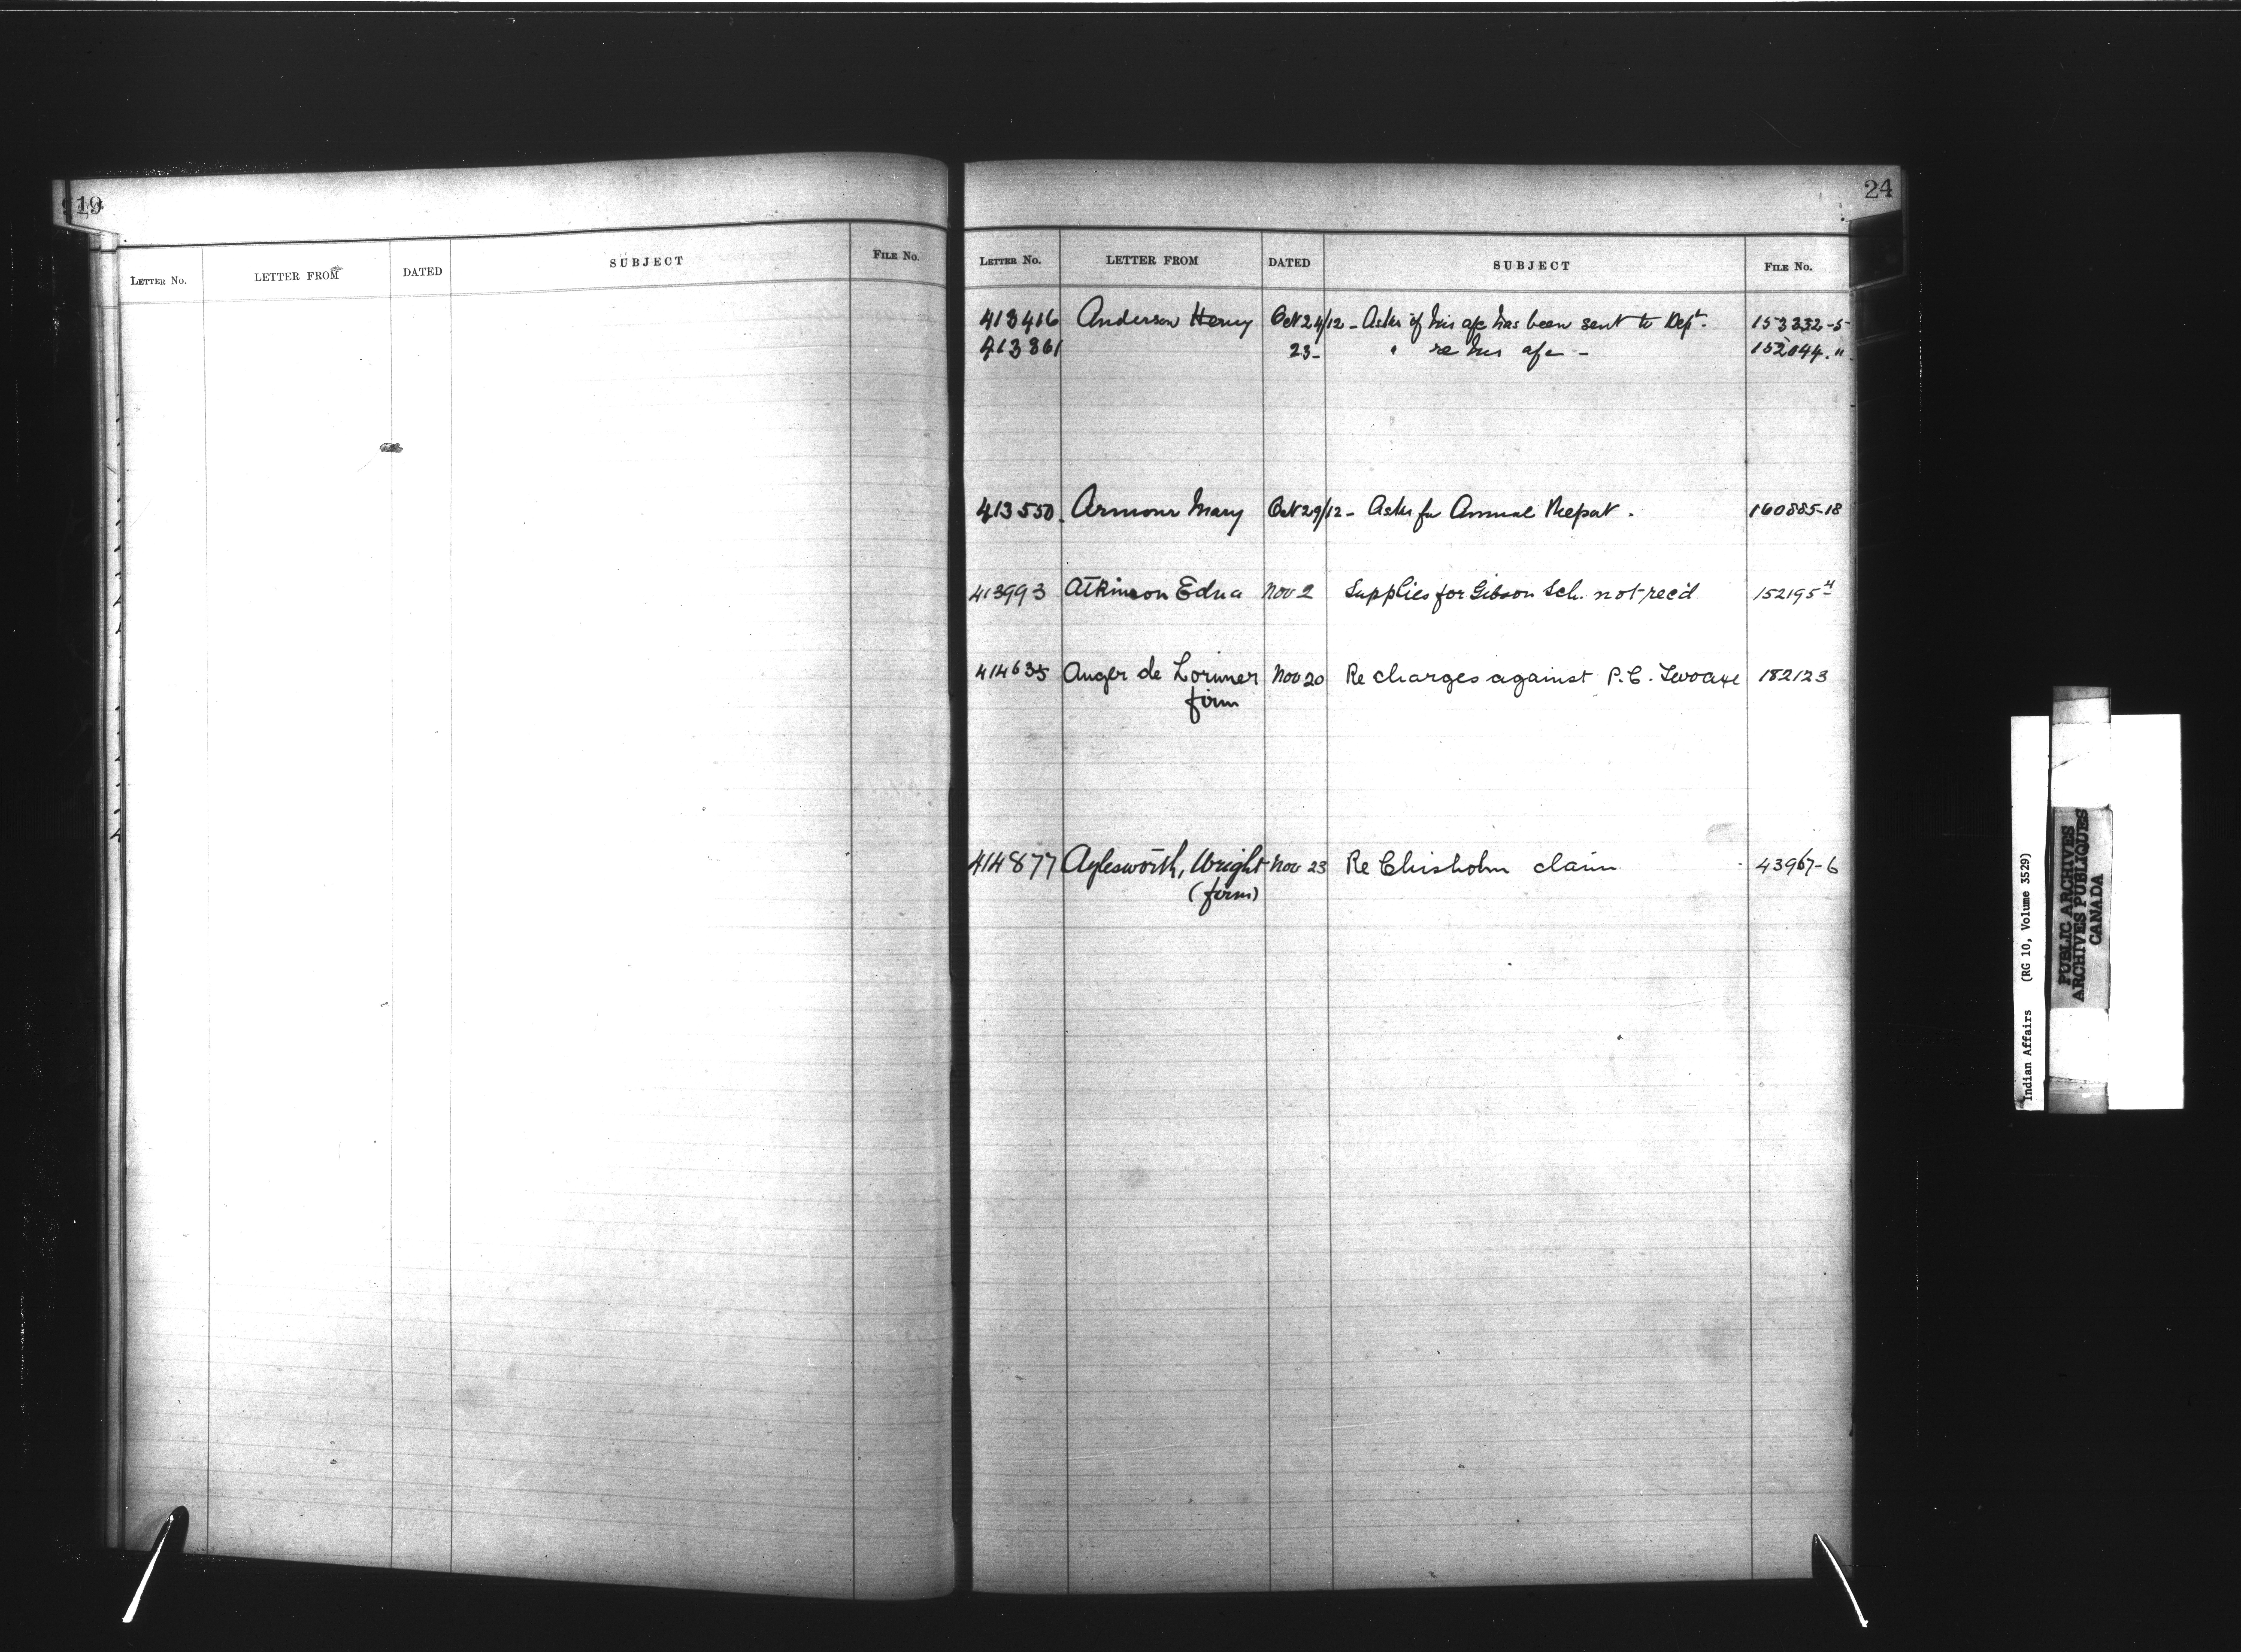 19
LETTER NO. LETTER FROM DATED SUBJECT FILE NO.
24
LETTER NO. LETTER FROM DATED SUBJECT FILE NO.
413416 Anderson Henry Oct 24/12 - Asks if his a/c has been sent to Dept. 153332-5
413861 23- " re his a/c - 152044 . "
413550. Armour Mary Oct 29/12 - Asks for Annual Report . 160885-18
413993 Atkinson Edna Nov 2 Supplies for Gibson Sch. not rec'd 152195-4
414635 Auger de Lorimer Nov 20 Re charges against P.C. Twoaxe 182123
firm
414877 Aylesworth, Wright Nov 23 Re Chisholm claim 43967-6
(firm)
Indian Affairs (RG 10, Volume 3529)
PUBLIC ARCHIVES
ARCHIVES PUBLIQUES
CANADA